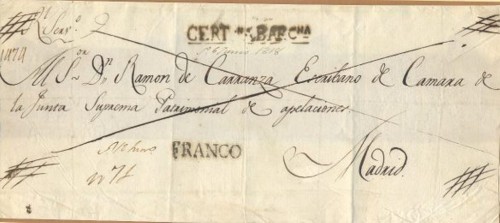 Rl Servo
CERTDO BARCNA
1819
Al Sor Dn Ramon de Carranza Escribano de Camara de
la Junta Suprema Patrimonial de apelaciones.
FRANCO
Madrid.